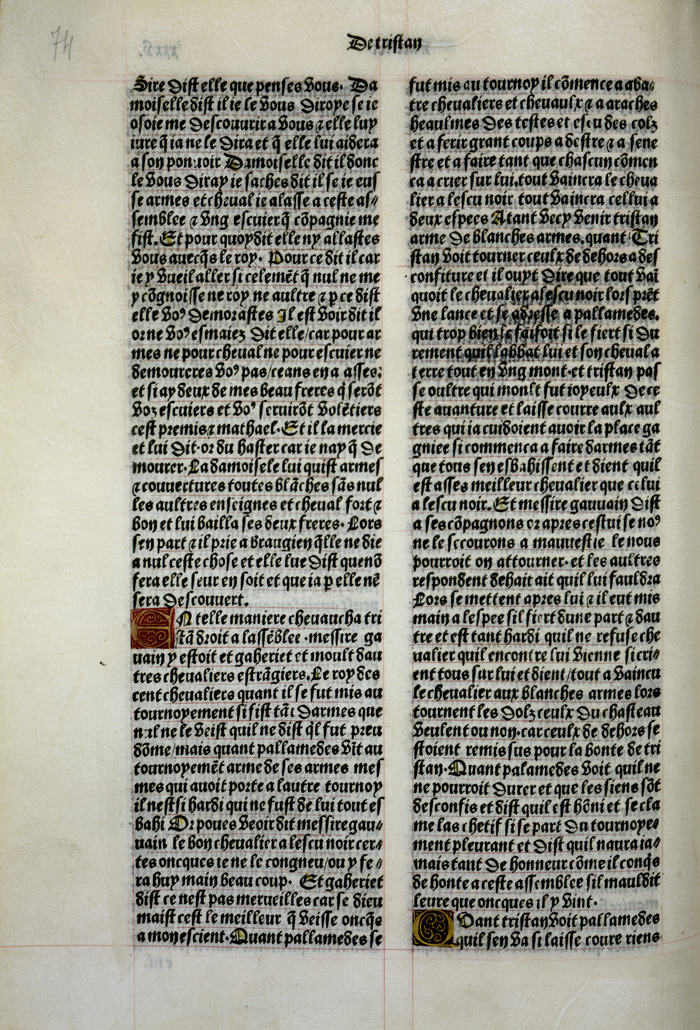 74
De tristan
Sire dist elle que penses vous. Da
moiselle dist il ie le vous diroye se ie
osoie me descouurir a vous ⁊ elle luy
iure q̄ ia ne le dira et q̄ elle lui aidera
a son pouuoir Damoiselle dit il donc
le vous diray ie saches dit il se ie eus
se armes et cheual ie alasse a ceste as⸗
semblee ⁊ vng escuier q̄ cōpagnie me
fist. Et pour quoy dit elle ny allastes
vous auecq̄s le roy. Pour ce dit il car
ie y vueil aller si celemēt q̄ nul ne me
y cōgnoisse ne roy ne aultre ⁊ ꝑ ce dist
elle voꝰ demorastes Il est voir dit il
or ne voꝰ esmaiez dit elle/car pour ar
mes ne pour cheual ne pour escuier ne
demoureres voꝰ pas/ceans en a asses:
et si ay deux de mes beau freres q̄ serōt
voz escuiers et voꝰ seruirōt volētiers
cest premis ⁊ mathael. Et il la mercie
et lui dit. or du haster car ie nay q̄ de
mourer. La damoisele lui quist armes
⁊ couuertures toutes blāches sās nul
les aultres enseignes et cheual fort ⁊
bon et lui bailla ses deux freres. Lors
sen part ⁊ il prie a braugien q̄lle ne die
a nul ceste chose et elle lue dist quenō
fera elle seur en soit et que ia ꝑ elle nē
sera descouuert.
En telle maniere cheuaucha tri
stā droit a lassēblee. messire ga
uain y estoit et gaheriet et moult dau
tres cheualiers estrāgiers. Le roy des
cent cheualiers quant il se fut mis au
tournoyement si fist tāt darmes que
nul ne le veist quil ne dist q̄l fut preu
dōme/mais quant pallamedes vīt au
tournoyemēt arme de ses armes mes
mes qui auoit porte a lautre tournoy
il nest si hardi qui ne fust de lui tout es
bahi Or poues veoir dit messire gau⸗
uain le bon cheualier a lescu noir cer⸗
tes oncques ie ne le congneu/ou y fe⸗
ra huy main beau coup. Et gaheriet
dist ce nest pas merueilles car se dieu
maist cest le meilleur q̄ veisse oncq̄s
a mon escient. Quant pallamedes se
fut mis au tournoy il cōmence a aba⸗
tre cheualiers et cheuaulx ⁊ a araches
heaulmes des testes et escu des colz
et a ferir grant coups a destre ⁊ a sene
stre et a faire tant que chascun cōmen
ca a crier sur lui. tout vaincra le cheua
lier a lescu noir tout vaincra cellui a
deux espees Atant vecy venir tristan
arme de blanches armes. quant Tri
stan voit tourner ceulx de dehors a des
confiture et il ouyt dire que tout vaī
quoit le cheualier a lescu noir lors prēt
vne lance et se adresse a pallamedes.
qui trop bien le faisoit si le fiert si du
rement quil labbat lui et son cheual a
terre tout en vng mont. et tristan pas
se oultre qui moult fut ioyeulx de ce
ste auanture et laisse courre aulx aul
tres qui ia cuidoient auoir la place ga
gniee si commenca a faire darmes tāt
que tous sen esbahissent et dient quil
est asses meilleur cheualier que celui
a lescu noir. Et messire gauuain dist
a ses cōpagnons or apres cestui se noꝰ
ne le secourons a mauuestie le nous
pourroit on attourner. et les aultres
respondent dehait ait quil lui fauldra
Lors se mettent apres lui ⁊ il eut mis
main a lespee si l fiert dune part ⁊ dau
tre et est tant hardi quil ne refuse che
ualier quil encontre lui vienne si cri⸗
ent tous sur lui et dient/tout a vaincu
le cheualier aux blanches armes lors
tournent les dolz ceulx du chasteau
veulent ou non. car ceulx de dehors se
stoient remis sus pour la bonte de tri
stan. Quant palamedes voit quil ne
ne pourroit durer et que les siens sōt
desconfis et dist quil est hōni et se cla
me las chetif si se part du tournoye⸗
ment pleurant et dist quil naura ia⸗
mais tant de honneur cōme il conq̄s
de honte a ceste assemblee sil mauldit
leure que oncques il y vint.
Quant tristan voit pallamedes
quil sen va si laisse coure riens